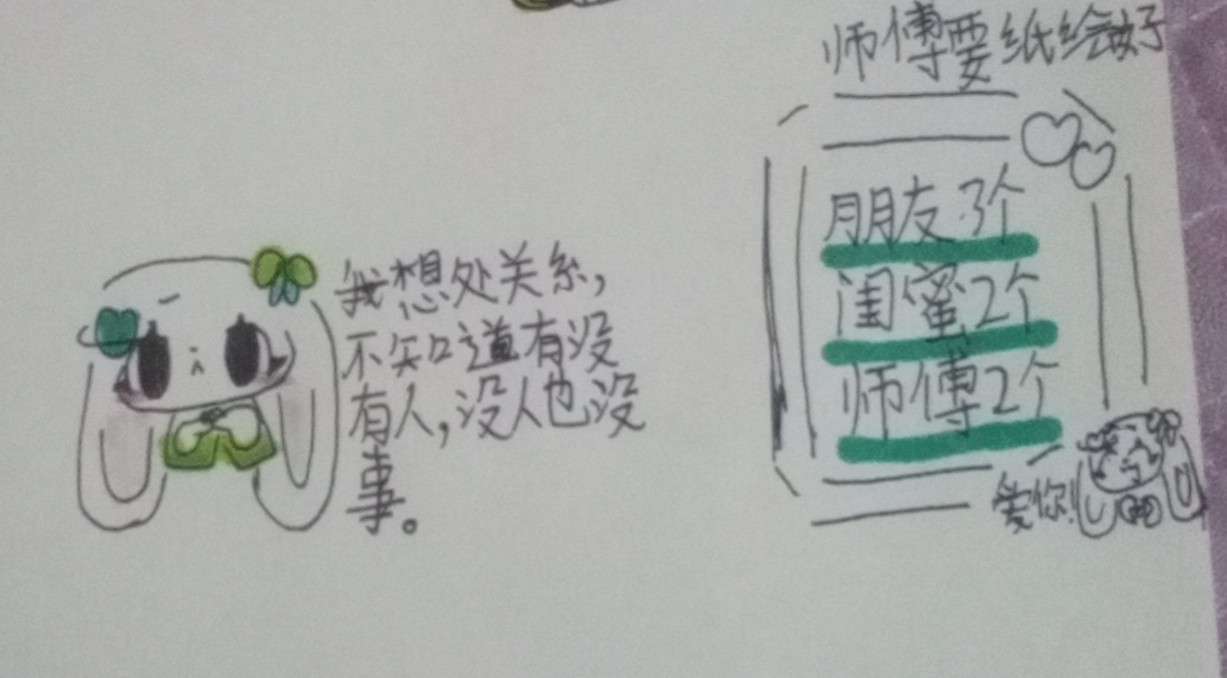 我想处关系,
不知道有没
有人,没人也没
事。
师傅要纸绘好
朋友3个
闺蜜2个
师傅2个
爱你!